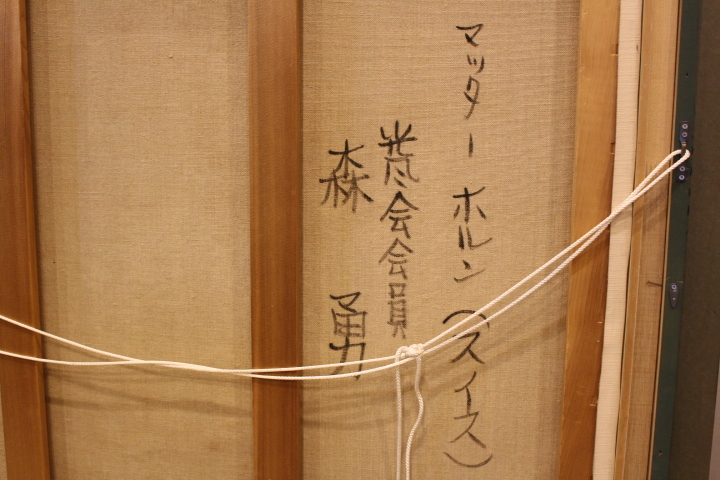 マッターホルン(スイス)
光風会会員
森 勇